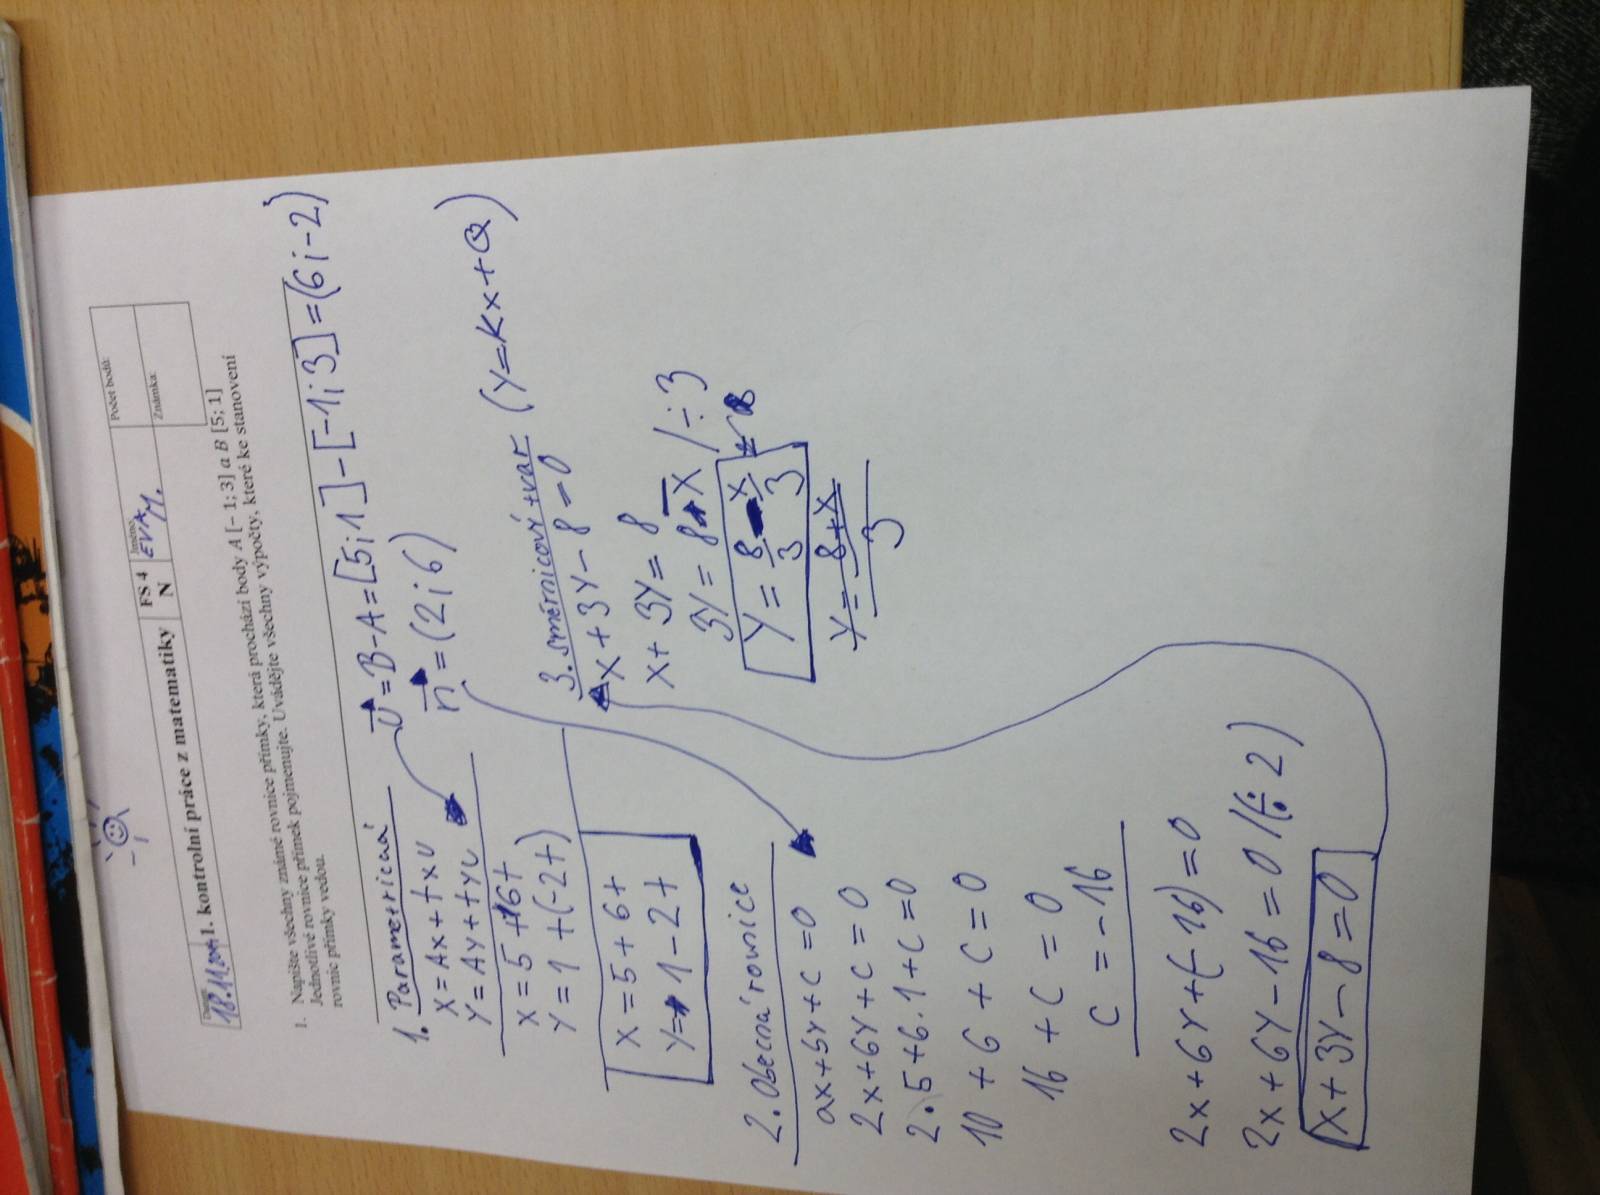 Datum: 18.11.
1. kontrolní práce z matematiky
FS 4
N
Jméno:
EVA M.
Počet bodů:
Známka:
1. Napište všechny známé rovnice přímky, která prochází body A [- 1; 3] a B [5; 1]
Jednotlivé rovnice přímek pojmenujte. Uvádějte všechny výpočty, které ke stanovení
rovnic přímky vedou.
u = B-A = [5;1] - [-1;3] = (6;-2)
n = (2;6)
1. Parametrická
x = Ax + txu
y = Ay + tyu
x = 5 + 6t
y = 1 + (-2t)
x = 5 + 6t
y = 1 - 2t
2. Obecná rovnice
ax + by + c = 0
2x + 6y + c = 0
2 · 5 + 6 · 1 + c = 0
10 + 6 + c = 0
16 + c = 0
c = -16
2x + 6y + (-16) = 0
2x + 6y - 16 = 0 /(÷2)
x + 3y - 8 = 0
3. směrnicový tvar (y = kx + Q)
x + 3y - 8 = 0
x + 3y = 8
3y = 8 - x / ÷3
y = 8/3 - x/3
y = 8+x/3